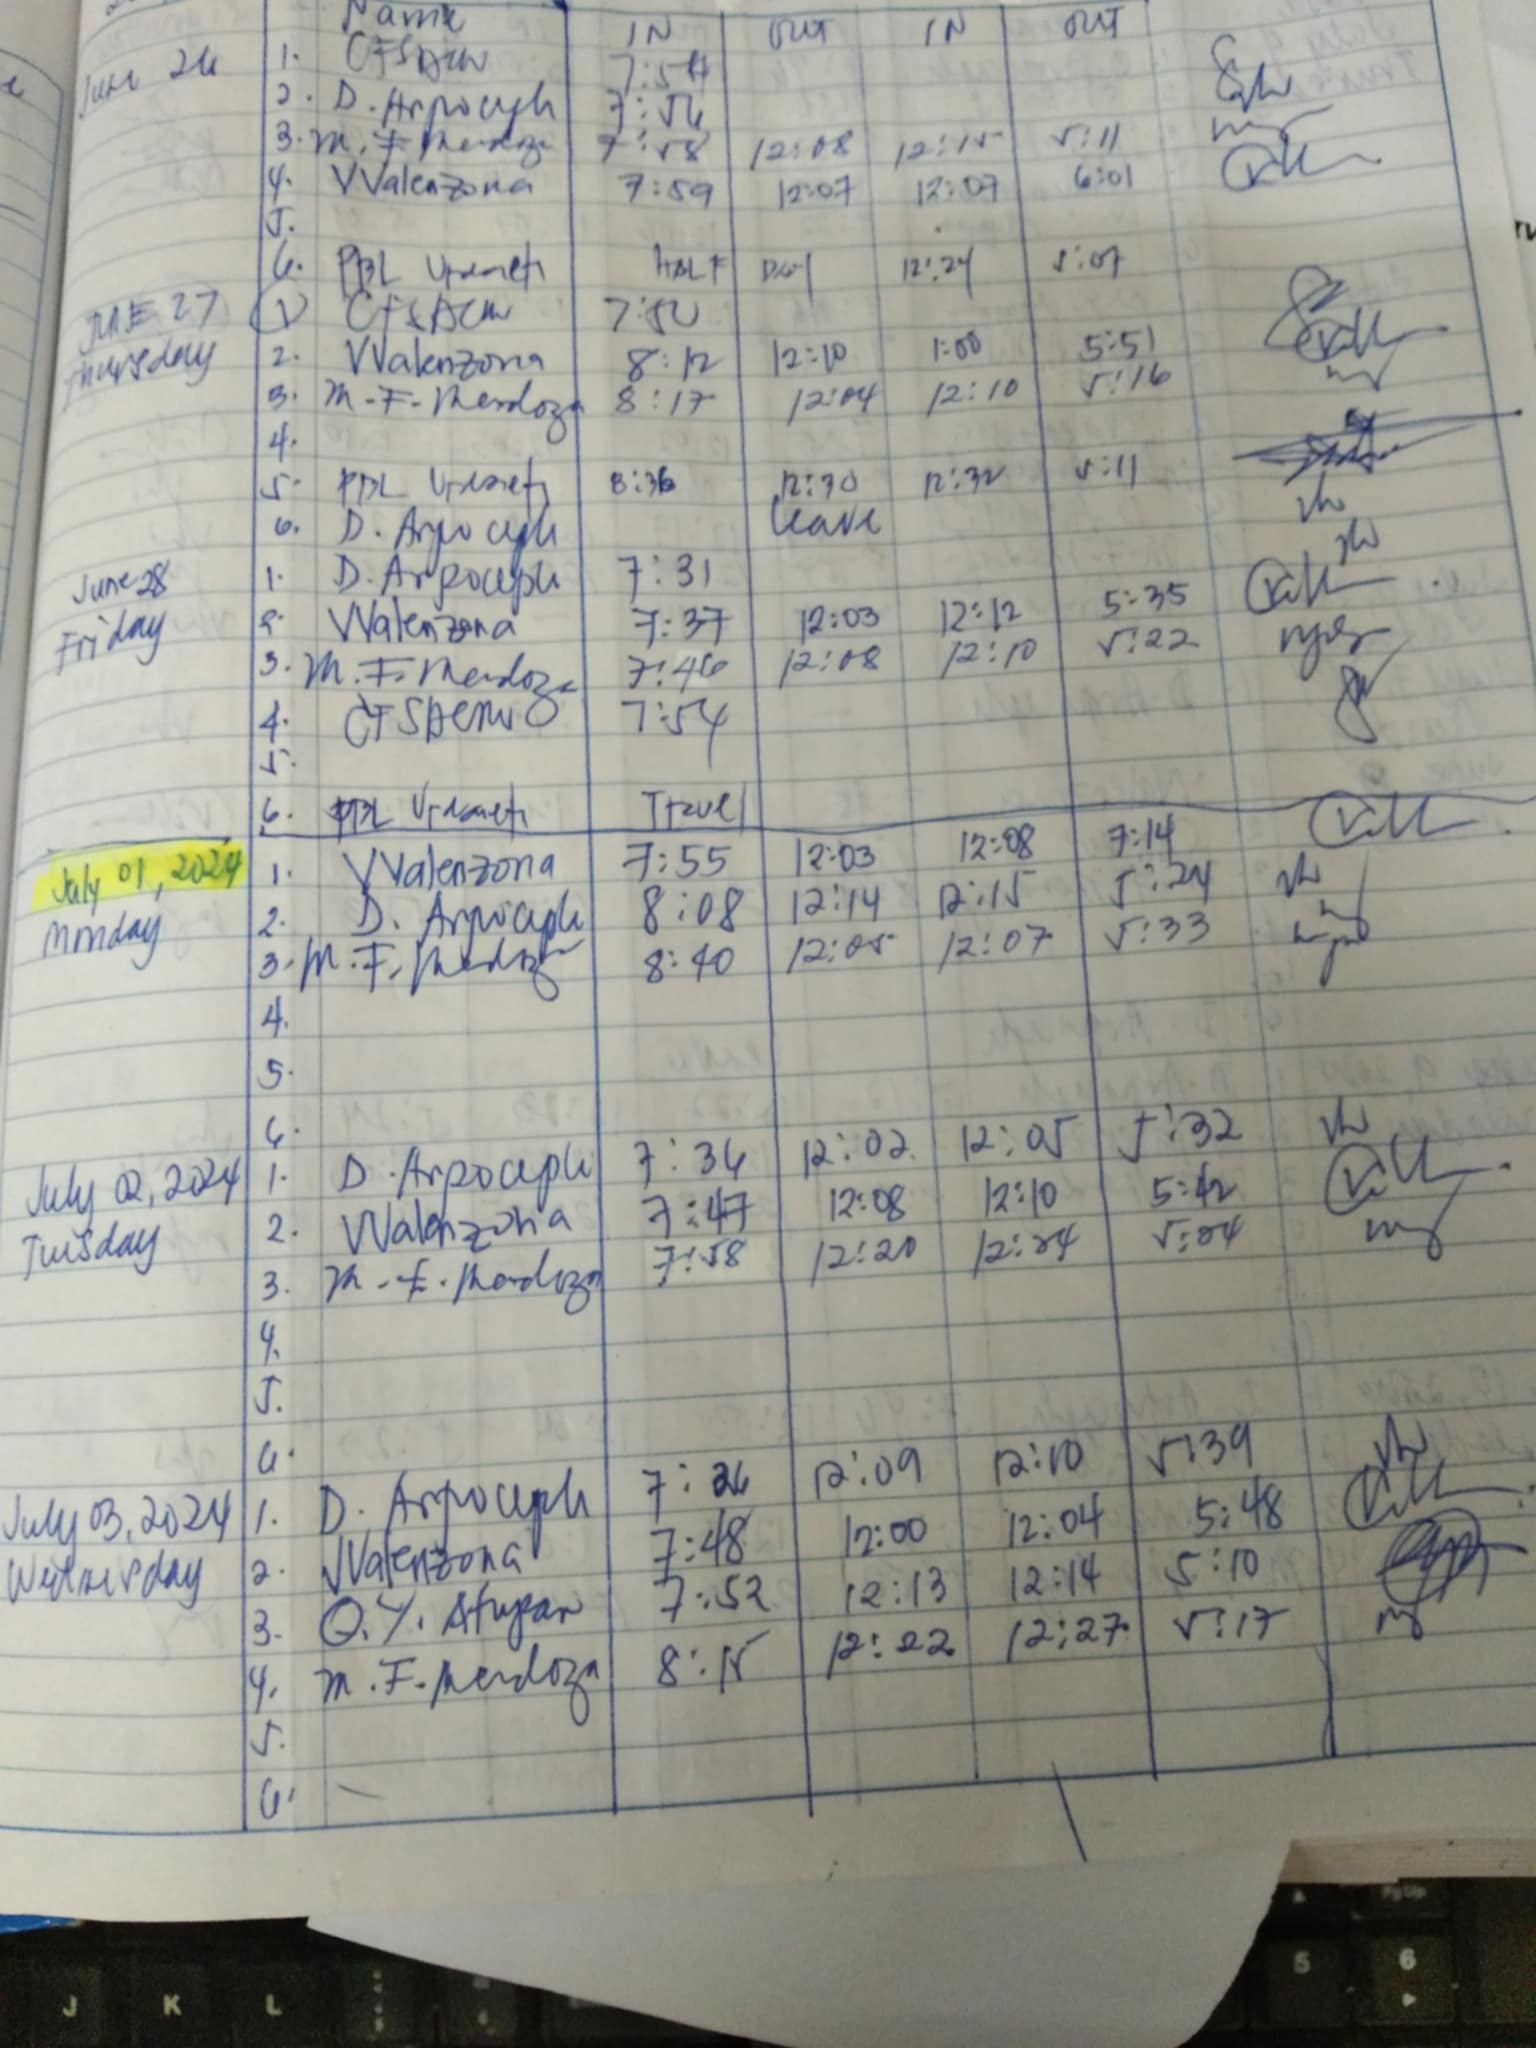 Name IN OUT IN OUT
June 26 1.
2. D. Arpoceph 7:56
3. M. F. Mendoza 7:58 12:08 12:15 5:11
4. VValenzona 7:59 12:07 12:07 6:01
5.
6. PBL HALF DAY 12:24 5:07
JUNE 27 1 7:50
Thursday 2. VValenzona 8:12 12:10 1:00 5:51
3. M. F. Mendoza 8:17 12:04 12:10 5:16
4.
5. PBL 8:36 12:30 12:32 5:11
6. D. Arpoceph leave
June 28 1. D. Arpoceph 7:31
Friday 2. VValenzona 7:37 12:03 12:12 5:35
3. M. F. Mendoza 7:46 12:08 12:10 5:22
4. 7:54
5.
6. PBL Travel
July 01, 2024 1. VValenzona 7:55 12:03 12:08 7:14
Monday 2. D. Arpoceph 8:08 12:14 12:15 5:24
3. M. F. Mendoza 8:40 12:05 12:07 5:33
4.
5.
6.
July 02, 2024 1. D. Arpoceph 7:36 12:02 12:05 5:32
Tuesday 2. VValenzona 7:47 12:08 12:10 5:42
3. M. F. Mendoza 7:58 12:20 12:24 5:04
4.
5.
6.
July 03, 2024 1. D. Arpoceph 7:26 12:09 12:10 5:39
Wednesday 2. VValenzona 7:48 12:00 12:04 5:48
3. O. Y. 7:52 12:13 12:14 5:10
4. M. F. Mendoza 8:15 12:22 12:27 5:17
5.
6.
5 6
J K L